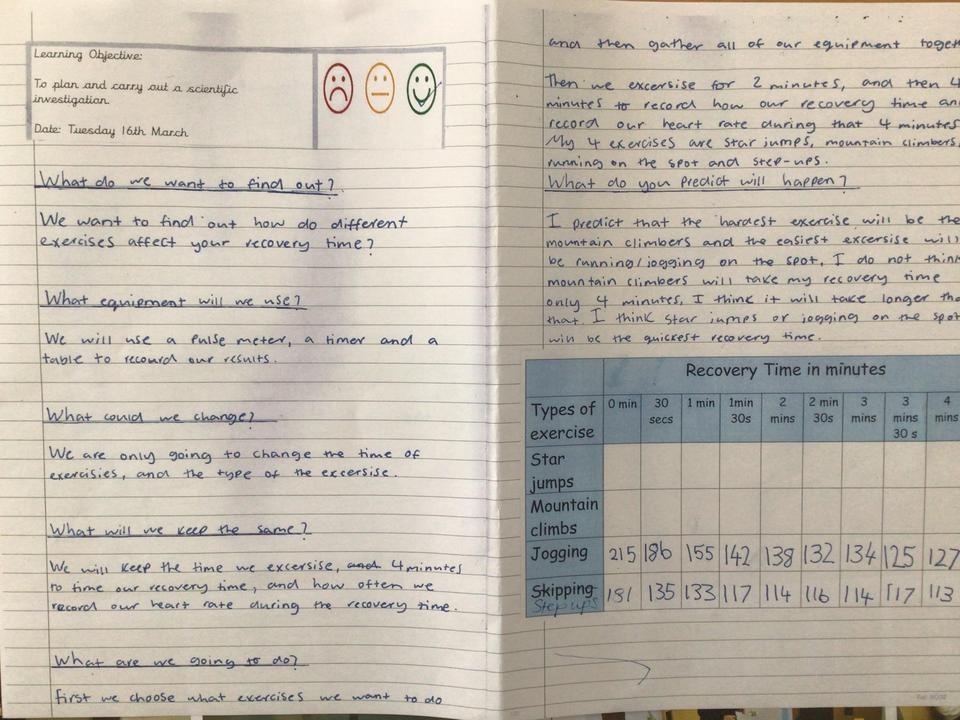 Learning Objective:
To plan and carry out a scientific
investigation.
Date: Tuesday 16th March
What do we want to find out?
We want to find out how do different
exercises affect your recovery time?
What equipment will we use?
We will use a Pulse meter, a timer and a
table to recourd our results.
What could we change?
We are only going to change the time of
exercisies, and the type of the excersise.
What will we keep the same?
We will keep the time we excersise, and 4 minutes
to time our recovery time, and how often we
record our heart rate during the recovery time.
What are we going to do?
first we choose what exercises we want to do
and then gather all of our equipment toget
Then we excersise for 2 minutes, and then 4
minutes to record how our recovery time an
record our heart rate during that 4 minutes
My 4 exercises are star jumps, mountain climbers,
running on the spot and step-ups.
What do you Predict will happen?
I predict that the hardest exercise will be the
mountain climbers and the easiest excersise will
be running/jogging on the spot, I do not think
mountain climbers will take my recovery time
only 4 minutes, I think it will take longer tha
that. I think star jumps or jogging on the spot
will be the quickest recovery time.
Recovery Time in minutes
Types of exercise 0 min 30 secs 1 min 1min 30s 2 mins 2 min 30s 3 mins 3 mins 30 s 4 mins
Star jumps
Mountain climbs
Jogging 215 186 155 142 138 132 134 125 127
Skipping 181 135 133 117 114 116 114 117 113
Step ups